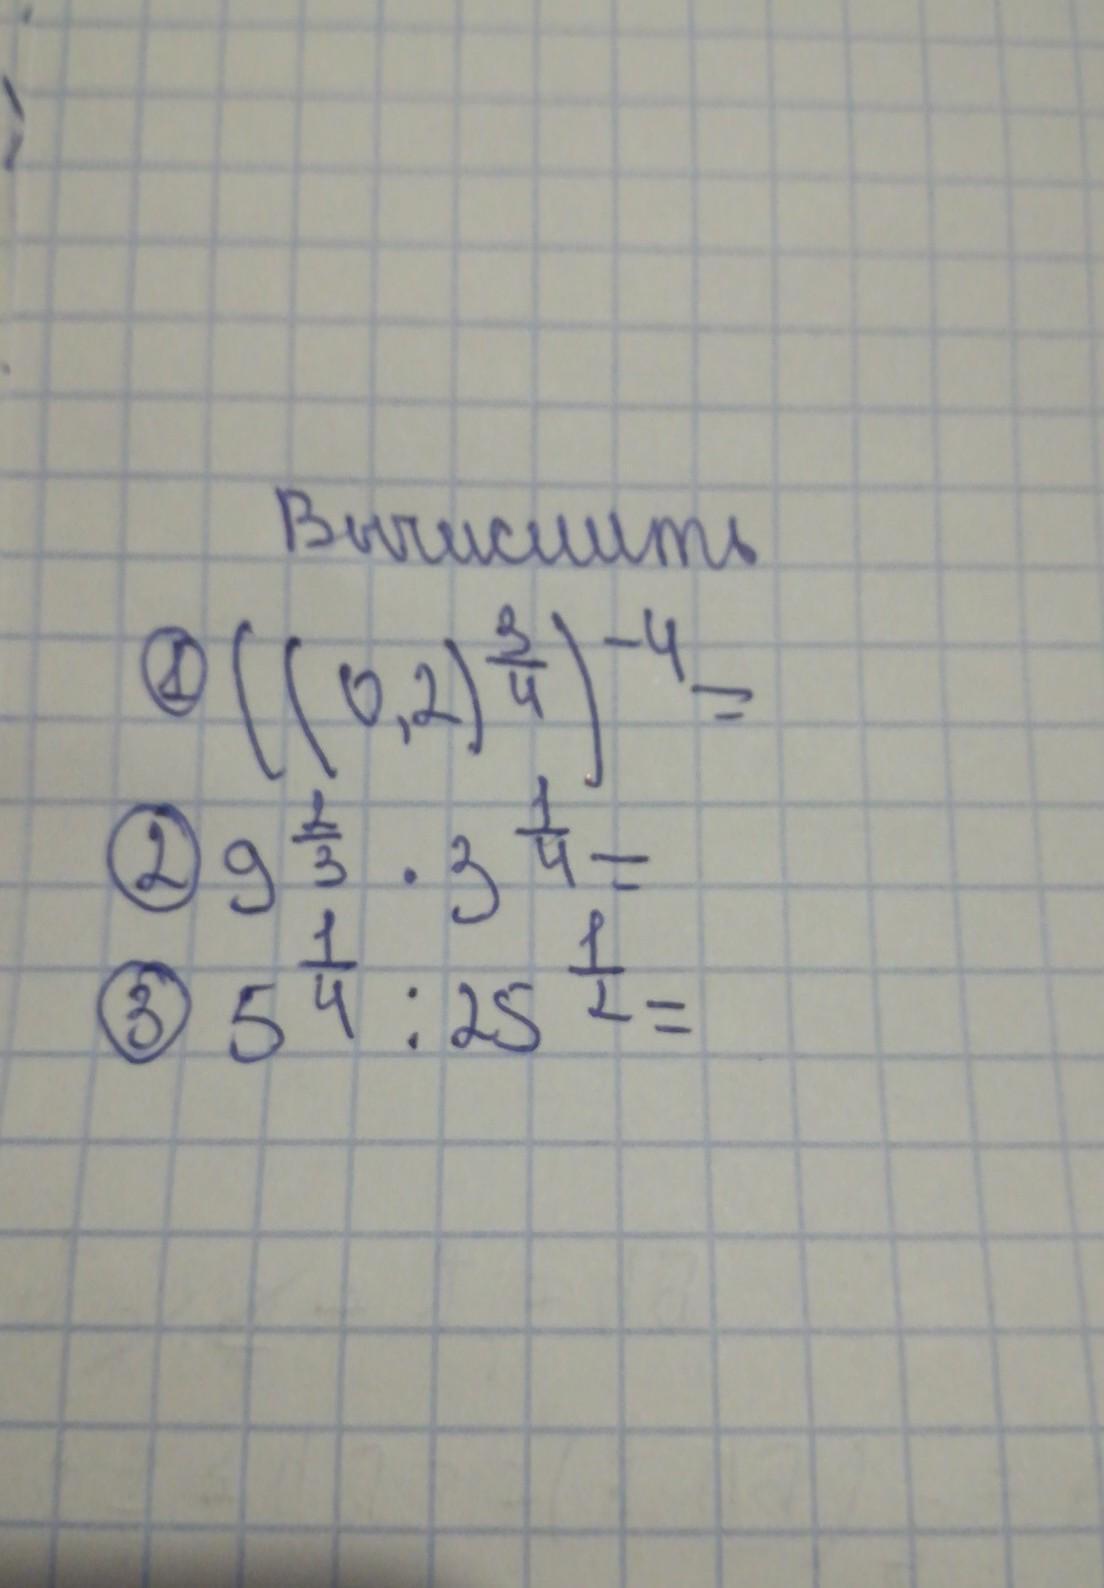 Вычислить
① ((0,2)^{\frac{3}{4}})^{-4} =
② 9^{\frac{2}{3}} · 3^{\frac{1}{4}} =
③ 5^{\frac{1}{4}} : 25^{\frac{1}{2}} =